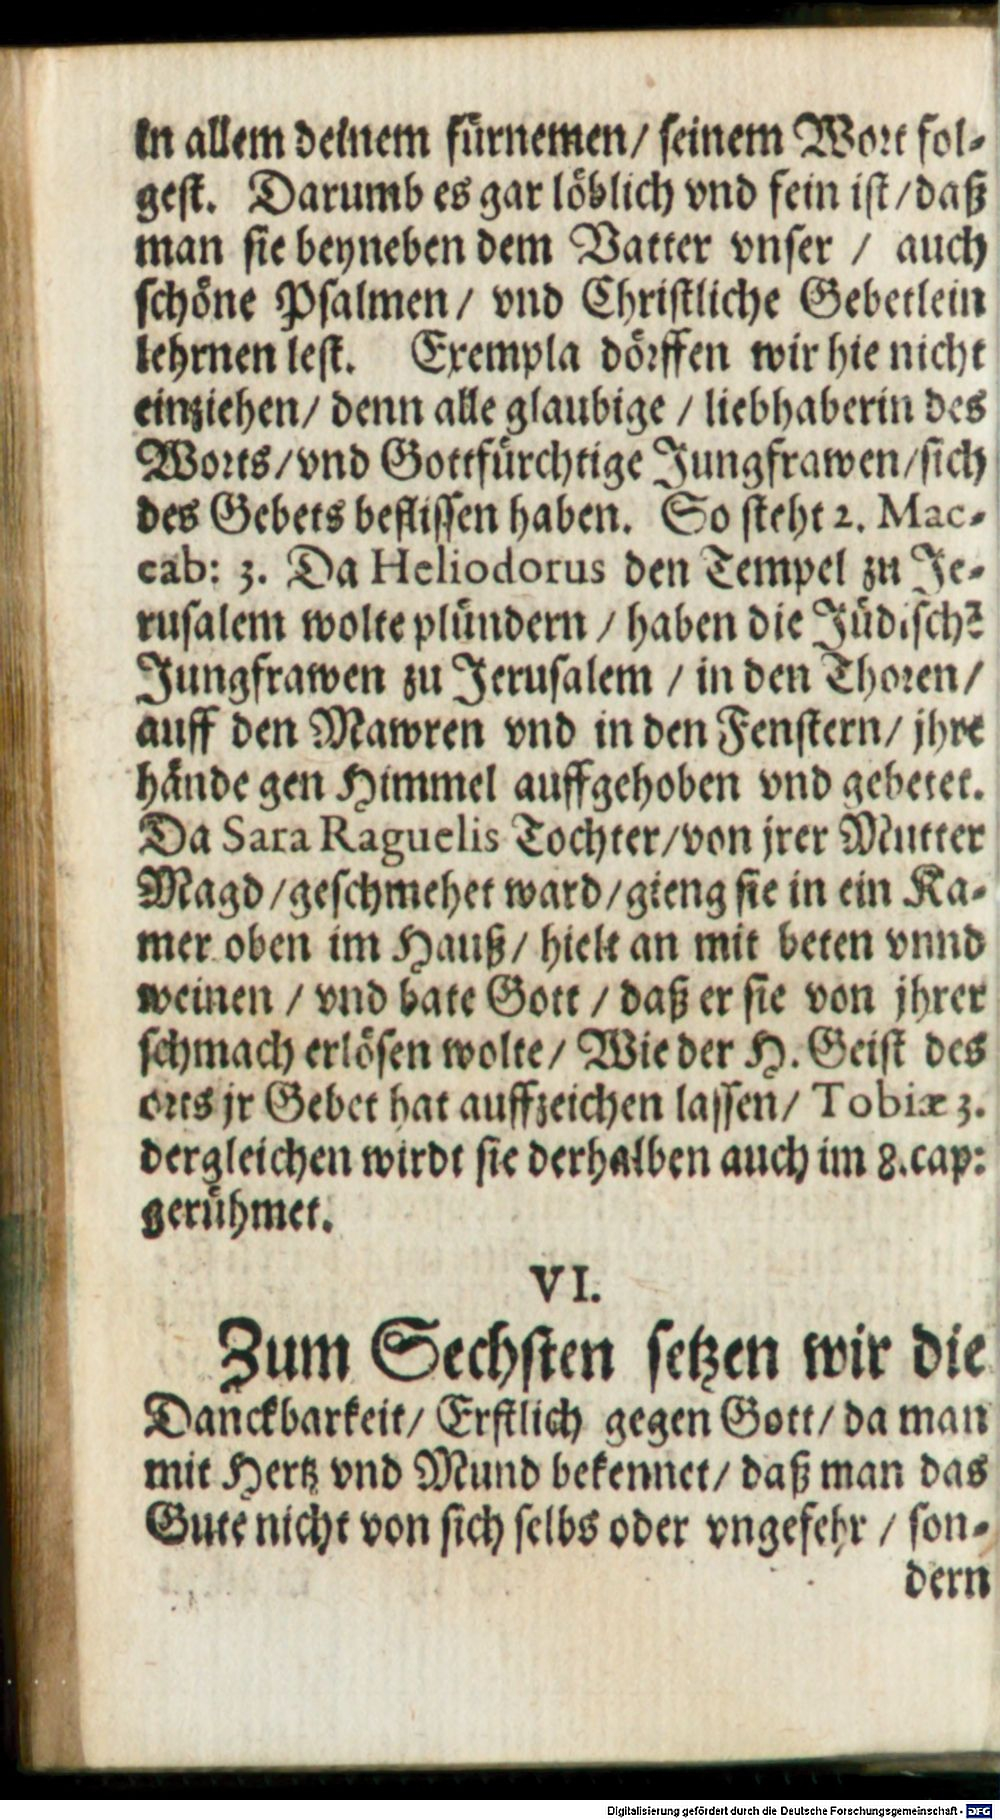 in allem deinem fürnemen/ seinem Wort fol-
gest. Darumb es gar löblich vnd fein ist/daß
man sie beyneben dem Vatter vnser / auch
schöne Psalmen/ vnd Christliche Gebetlein
lehrnen lest. Exempla dörffen wir hie nicht
einziehen/ denn alle glaubige / liebhaberin des
Worts/vnd Gottfürchtige Jungfrawen/sich
des Gebets beflissen haben. So steht 2. Mac-
cab: 3. Da Heliodorus den Tempel zu Je-
rusalem wolte plündern / haben die Jüdischē
Jungfrawen zu Jerusalem / in den Thoren/
auff den Mawren vnd in den Fenstern/ jhre
hände gen Himmel auffgehoben vnd gebetet.
Da Sara Raguelis Tochter/von jrer Mutter
Magd/geschmehet ward/gieng sie in ein Ka-
mer oben im Hauß/ hielt an mit beten vnnd
weinen / vnd bate Gott / daß er sie von jhrer
schmach erlösen wolte/ Wie der H. Geist des
orts jr Gebet hat auffzeichen lassen/ Tobiæ 3.
dergleichen wirdt sie derhalben auch im 8.cap:
gerühmet.
VI.
Zum Sechsten setzen wir die
Danckbarkeit/ Erstlich gegen Gott/ da man
mit Hertz vnd Mund bekennet/ daß man das
Gute nicht von sich selbs oder vngefehr / son-
dern
Digitalisierung gefördert durch die Deutsche Forschungsgemeinschaft - DFG